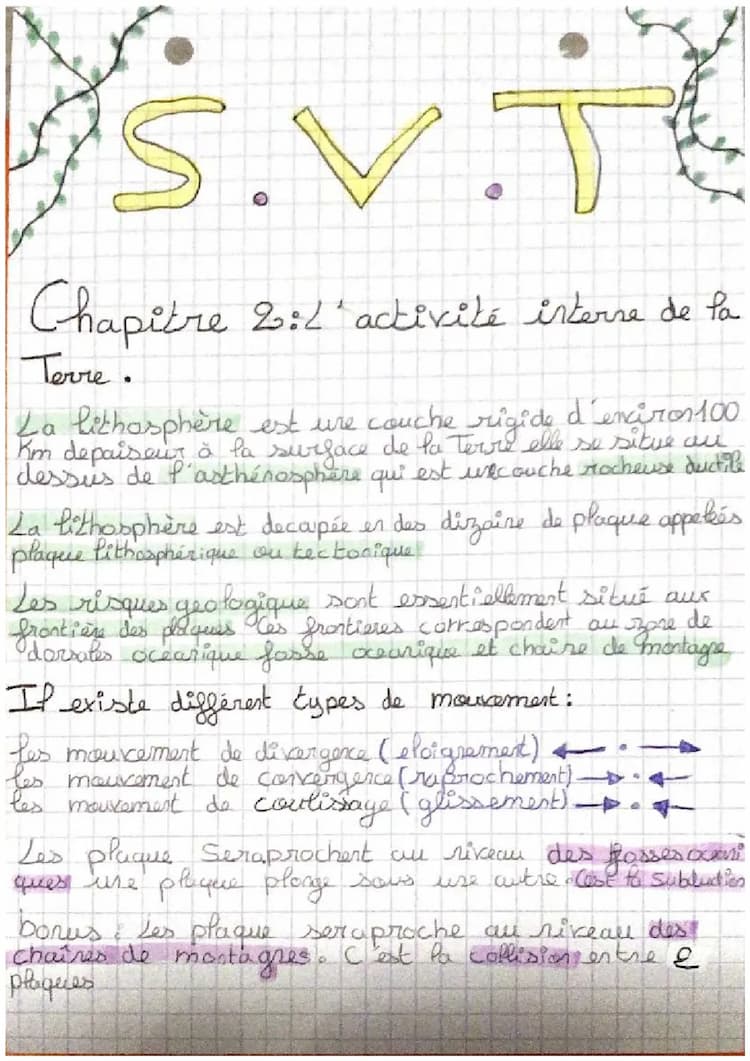 S.V.T
Chapitre 2:L'activité interne de la
Terre.
La lithosphère est une couche rigide d'environ 100
Km depaiseur à la surface de la Terre elle se situe au
dessus de l'asthénosphère qui est une couche rocheuse ductile
La lithosphère est decapée en des dizaine de plaque appelés
plaque lithosphérique ou tectonique
Les risques geologique sont essentiellement situé aux
frontière des plaques Ces frontieres correspondent au zone de
dorsales océanique fosse oceanique et chaine de montagne
Il existe différent types de mouvement:
les mouvement de divergence (eloignement)
les mouvement de convergence (raprochement)
les mouvement de coulissage (glissement)
Les plaque seraprochent au niveau des fosses oceani
ques une plaque plonge sous une autre. C'est la subduction
bonus : Les plaque seraproche au niveau des
chaînes de montagnes. C'est la collision entre 2
plaques